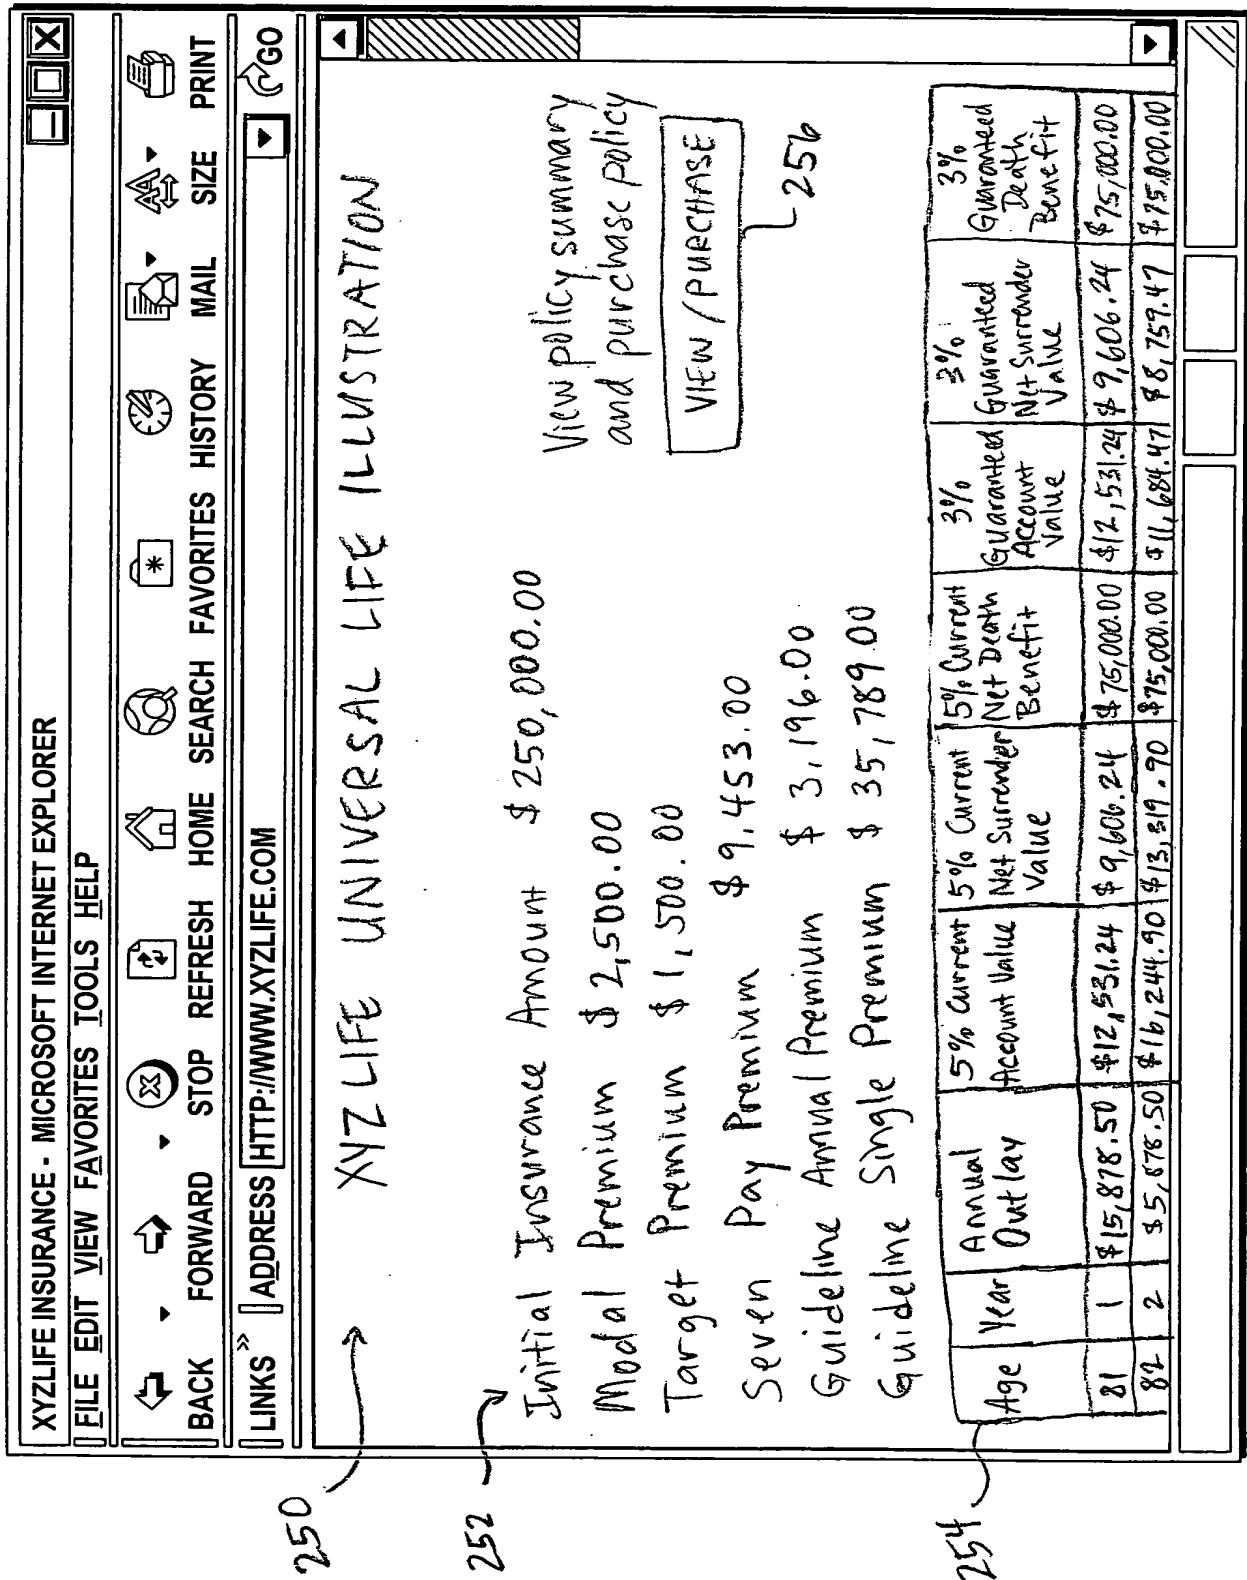 XYZLIFE INSURANCE - MICROSOFT INTERNET EXPLORER
FILE EDIT VIEW FAVORITES TOOLS HELP
BACK FORWARD STOP REFRESH HOME SEARCH FAVORITES HISTORY MAIL SIZE PRINT
LINKS » ADDRESS HTTP://WWW.XYZLIFE.COM GO
250
XYZ LIFE UNIVERSAL LIFE ILLUSTRATION
252
Initial Insurance Amount $250,000.00
Modal Premium $2,500.00
Target Premium $1,500.00
Seven Pay Premium $9,453.00
Guideline Annual Premium $3,196.00
Guideline Single Premium $35,789.00
View policy summary
and purchase policy
VIEW/PURCHASE
256
254
Age Year Annual Outlay 5% Current Account Value 5% Current Net Surrender Value 5% Current Net Death Benefit 3% Guaranteed Account Value 3% Guaranteed Net Surrender Value 3% Guaranteed Death Benefit
81 1 $15,878.50 $12,531.24 $9,606.24 $75,000.00 $12,531.24 $9,606.24 $75,000.00
82 2 $5,878.50 $16,244.90 $13,319.90 $75,000.00 $11,684.47 $8,759.47 $75,000.00